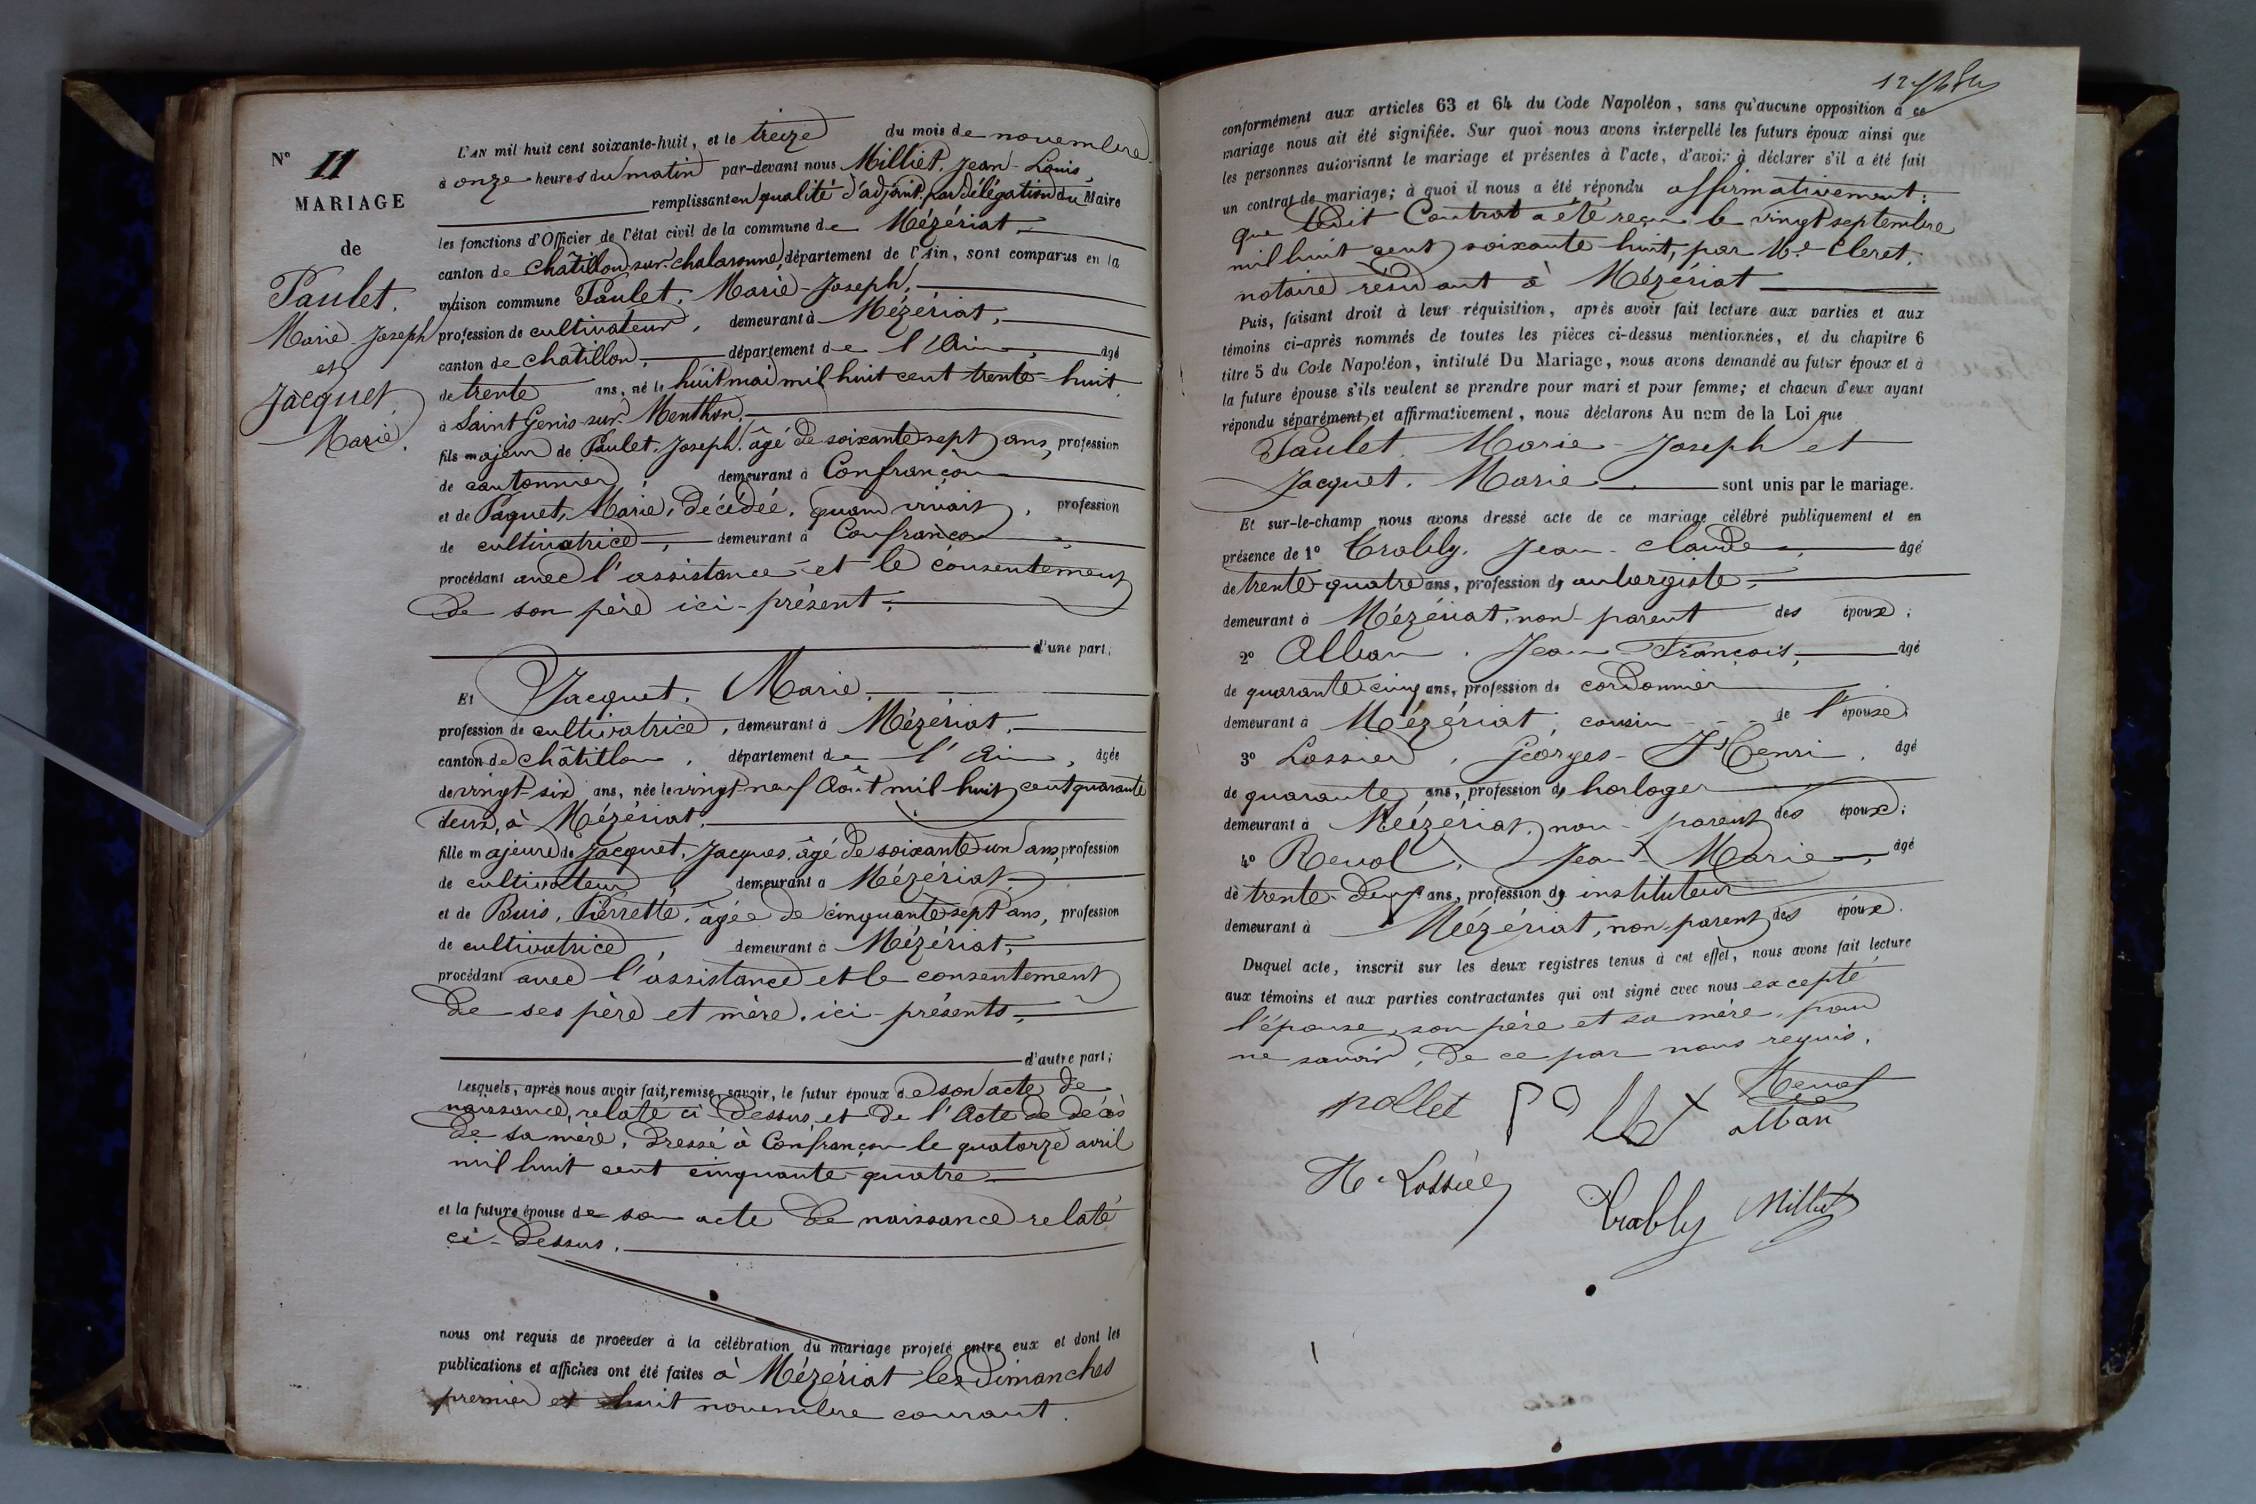 N° 11
MARIAGE
de
Paulet,
Marie-Joseph
et
Jacquet,
Marie.
L'AN mil huit cent soixante-huit, et le treize du mois de novembre
à onze heures du matin par-devant nous Milliet, Jean-Louis,
remplissant en qualité d'adjoint par délégation du Maire
les fonctions d'Officier de l'état civil de la commune de Mézériat,
canton de Châtillon-sur-chalaronne, département de l'Ain, sont comparus en la
maison commune Paulet, Marie-Joseph,
profession de cultivateur, demeurant à Mézériat,
canton de châtillon, département de l'Ain, âgé
de trente ans, né le huit mai mil huit cent trente-huit
à Saint Genis-sur-Menthon,
fils majeur de Paulet, Joseph, âgé de soixante sept ans, profession
de cantonnier, demeurant à Confrançon
et de Paquet, Marie, décédée, quand vivait, profession
de cultivatrice, demeurant à Confrançon,
procédant avec l'assistance et le consentement
de son père ici-présent,
d'une part;
Et Jacquet, Marie,
profession de cultivatrice, demeurant à Mézériat,
canton de châtillon, département de l'Ain, âgée
de vingt-six ans, née le vingt neuf Août mil huit cent quarante
deux, à Mézériat,
fille majeure de Jacquet, Jacques, âgé de soixante-un ans, profession
de cultivateur, demeurant à Mézériat,
et de Buis, Pierrette, âgée de cinquante-sept ans, profession
de cultivatrice, demeurant à Mézériat,
procédant avec l'assistance et le consentement
de ses père et mère, ici-présents,
d'autre part;
Lesquels, après nous avoir fait remise, savoir, le futur époux de son acte de
naissance, relaté ci-dessus, et de l'Acte de décès
de sa mère, dressé à Confrançon le quatorze avril
mil huit cent cinquante-quatre
et la future épouse de son acte de naissance relaté
ci-dessus.
nous ont requis de procéder à la célébration du mariage projeté entre eux et dont les
publications et affiches ont été faites à Mézériat les dimanches
premier et huit novembre courant.
conformément aux articles 63 et 64 du Code Napoléon, sans qu'aucune opposition à ce
mariage nous ait été signifiée. Sur quoi nous avons interpellé les futurs époux ainsi que
les personnes autorisant le mariage et présentes à l'acte, d'avoir à déclarer s'il a été fait
un contrat de mariage; à quoi il nous a été répondu affirmativement;
que ledit Contrat a été reçu le vingt septembre
mil huit cent soixante-huit, par Me Cleret,
notaire résidant à Mézériat
Puis, faisant droit à leur réquisition, après avoir fait lecture aux parties et aux
témoins ci-après nommés de toutes les pièces ci-dessus mentionnées, et du chapitre 6
titre 5 du Code Napoléon, intitulé Du Mariage, nous avons demandé au futur époux et à
la future épouse s'ils veulent se prendre pour mari et pour femme; et chacun d'eux ayant
répondu séparément et affirmativement, nous déclarons Au nom de la Loi que
Paulet, Marie-Joseph et
Jacquet, Marie sont unis par le mariage.
Et sur-le-champ nous avons dressé acte de ce mariage célébré publiquement et en
présence de 1° Trably, Jean-Claude, âgé
de trente-quatre ans, profession d'aubergiste,
demeurant à Mézériat, non-parent des époux;
2° Alban, Jean-François, âgé
de quarante-cinq ans, profession de cordonnier
demeurant à Mézériat, cousin de l'épouse;
3° Lossier, Georges-Henri, âgé
de quarante ans, profession d'horloger
demeurant à Mézériat, non-parent des époux;
4° Revol, Jean-Marie, âgé
de trente-deux ans, profession d'instituteur
demeurant à Mézériat, non-parent des époux.
Duquel acte, inscrit sur les deux registres tenus à cet effet, nous avons fait lecture
aux témoins et aux parties contractantes qui ont signé avec nous excepté
l'épouse, son père et sa mère, pour
ne savoir, de ce par nous requis.
pollet Revol
alban
Hri Lossier
Trably Milliet